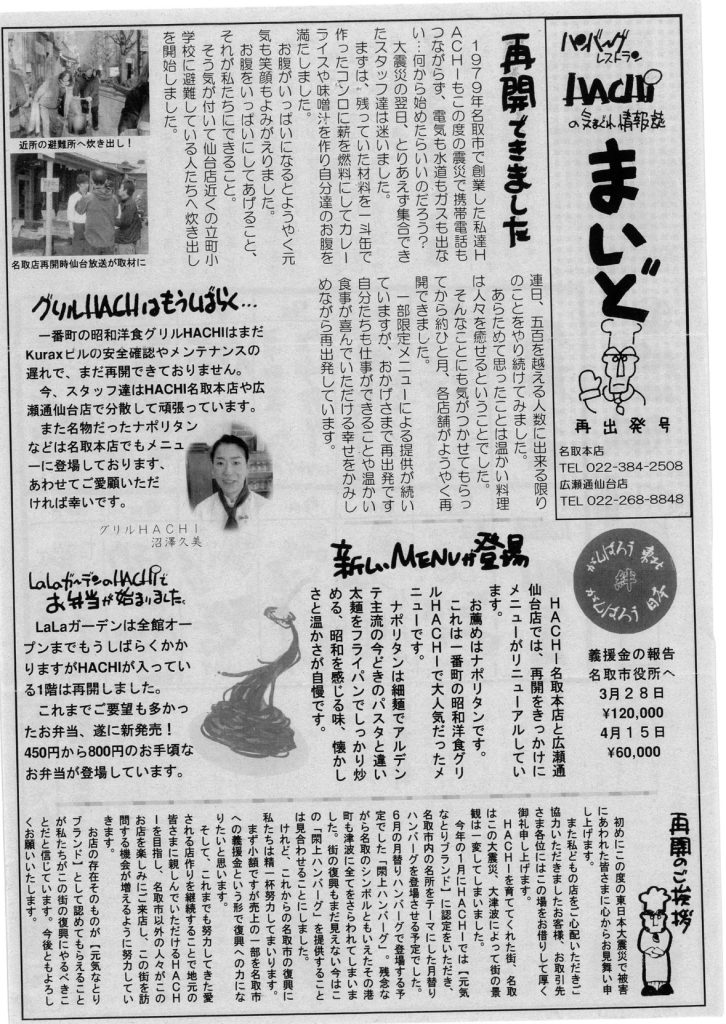 ハンバーグ
レストラン
HACHi
の気まぐれ情報誌
まいど
再出発号
名取本店
TEL 022-384-2508
広瀬通仙台店
TEL 022-268-8848
再開できました
1979年名取市で創業した私達H
ACHIもこの度の震災で携帯電話も
つながらず、電気も水道もガスも出な
い…何から始めたらいいのだろう?
大震災の翌日、とりあえず集合でき
たスタッフ達は迷いました。
まずは、残っていた材料を一斗缶で
作ったコンロに薪を燃料にしてカレー
ライスや味噌汁を作り自分達のお腹を
満たしました。
お腹がいっぱいになるとようやく元
気も笑顔もよみがえりました。
お腹をいっぱいにしてあげること、
それが私たちにできること。
そう気が付いて仙台店近くの立町小
学校に避難している人たちへ炊き出し
を開始しました。
近所の避難所へ炊き出し!
名取店再開時仙台放送が取材に
連日、五百を越える人数に出来る限り
のことをやり続けてみました。
あらためて思ったことは温かい料理
は人々を癒せるということでした。
そんなことにも気がつかせてもらっ
てから約ひと月、各店舗がようやく再
開できました。
一部限定メニューによる提供が続い
ていますが、おかげさまで再出発です
自分たちも仕事ができることや温かい
食事が喜んでいただける幸せをかみし
めながら再出発しています。
グリルHACHIはもうしばらく…
一番町の昭和洋食グリルHACHIはまだ
Kuraxビルの安全確認やメンテナンスの
遅れで、まだ再開できておりません。
今、スタッフ達はHACHI名取本店や広
瀬通仙台店で分散して頑張っています。
また名物だったナポリタン
などは名取本店でもメニュ
ーに登場しております、
あわせてご愛顧いただ
ければ幸いです。
グリルHACHI
沼澤久美
がんばろう 東北
絆
がんばろう 日本
義援金の報告
名取市役所へ
3月28日
¥120,000
4月15日
¥60,000
新しいMENUが登場
HACHI名取本店と広瀬通
仙台店では、再開をきっかけに
メニューがリニューアルしてい
ます。
お薦めはナポリタンです。
これは一番町の昭和洋食グリ
ルHACHIで大人気だったメ
ニューです。
ナポリタンは細麺でアルデン
テ主流の今どきのパスタと違い
太麺をフライパンでしっかり炒
める、昭和を感じる味、懐かし
さと温かさが自慢です。
LaLaガーデンのHACHIで
お弁当が始まりました
LaLaガーデンは全館オー
プンまでもうしばらくかか
りますがHACHIが入ってい
る1階は再開しました。
これまでご要望も多かっ
たお弁当、遂に新発売!
450円から800円のお手頃な
お弁当が登場しています。
再開のご挨拶
初めにこの度の東日本大震災で被害
にあわれた皆さまに心からお見舞い申
し上げます。
また私どもの店をご心配いただきご
協力いただきましたお客様、お取引先
さま各位にはこの場をお借りして厚く
御礼申し上げます。
HACHIを育ててくれた街、名取
はこの大震災、大津波によって街の景
観は一変してしまいました。
今年の1月にHACHIでは【元気
なとりブランド】に認定をいただき、
名取市内の名所をテーマにした月替り
ハンバーグを登場させる予定でした。
6月の月替りハンバーグで登場する予
定でした「閖上ハンバーグ」。残念な
がら名取のシンボルともいえたその港
町も津波に全てをさらわれてしまいま
した。街の復興もまだ見えない今はこ
の「閖上ハンバーグ」を提供すること
は見合わせることにしました。
けれど、これからの名取市の復興に
私たちは精一杯努力してまいります。
まず小額ですが売上の一部を名取市
への義援金という形で復興への力にな
りたいと思います。
そして、これまでも努力してきた愛
される店作りを継続することで地元の
皆さまに親しんでいただけるHACH
Iを目指し、名取市以外の人々がこの
お店を楽しみにご来店し、この街を訪
問する機会が増えるように努力してい
きます。
お店の存在そのものが【元気なとり
ブランド】として認めてもらえること
が私たちがこの街の復興にやるべきこ
とだと信じています。今後ともよろし
くお願いいたします。